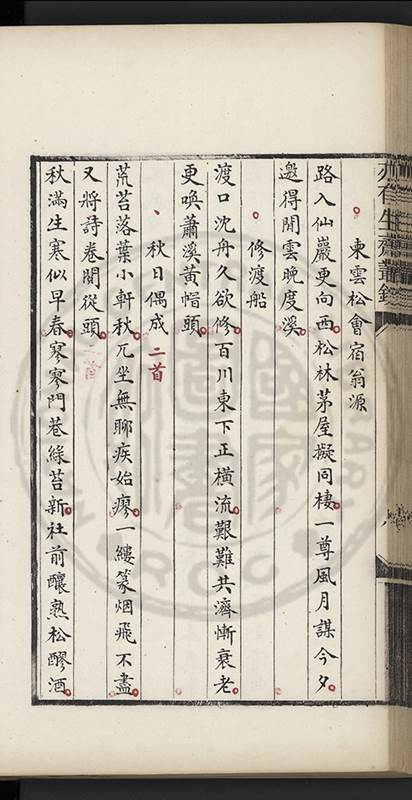 亦有生齋叢鈔
東雲松會宿翁源
路入仙巖更向西松林茅屋凝同棲一尊風月謀今夕
邀得閒雲晚度溪
修渡船
渡口沈舟久欲修百川東下正橫流艱難共濟慚衰老
更喚蕭溪黃帽頭
秋日偶成二首
荒苔落葉小軒秋兀坐無聊疾始瘳一縷篆烟飛不盡
又將詩卷閱從頭
秋滿生寒似早春寥寥門巷綠苔新社前釀熟松醪酒